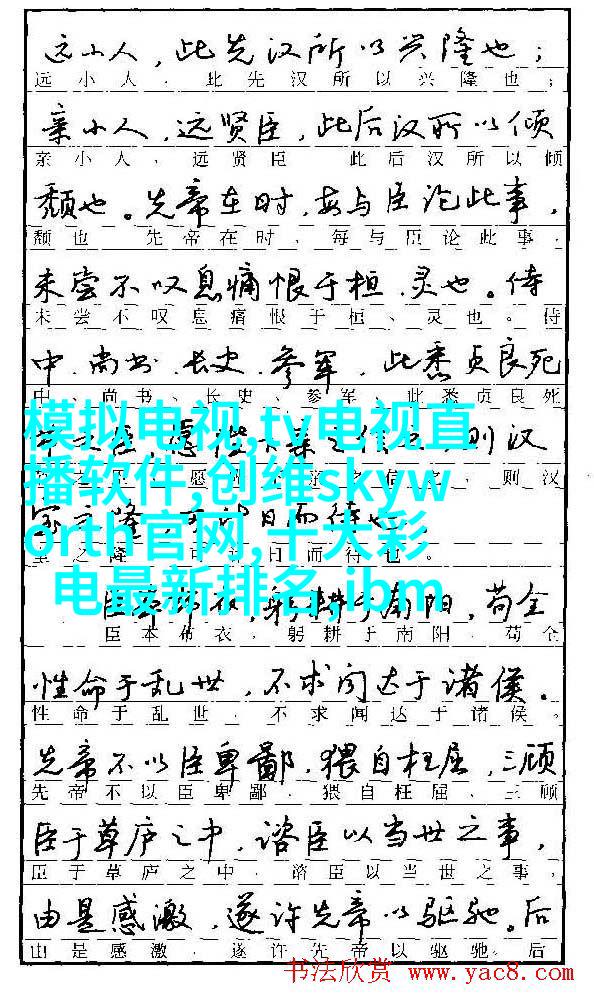 远小人，此先汉所以兴隆也；
远小人，此先汉所以兴隆也；
亲小人，远贤臣，此后汉所以倾
亲小人，远贤臣　此后汉所以倾
颓也。先帝在时，每与臣论此事，
颓也　先帝在时，每与臣论此事，
未尝不叹息痛恨于桓、灵也。侍
未尝不叹息痛恨于桓、灵也。侍
中、尚书、长史、参军，此悉贞良死
中、尚书、长史、参军、此悉贞良死
模拟电视,tv电视直
播软件,创维skyw
orth官网,十大彩
电最新排名,ibm
则汉
则汉
之隆，可计日而待也。
之隆，可计日而待也。
臣本布衣，躬耕于南阳，苟全
臣本布衣，躬耕于南阳，苟全
性命于乱世，不求闻达于诸侯。
性命于乱世，不求闻达于诸侯。
先帝不以臣卑鄙，猥自枉屈，三顾
先帝不以臣卑鄙，猥自枉屈、三顾
臣于草庐之中，谘臣以当世之事，
臣于草庐之中，谘臣以当世之事，
由是感激，遂许先帝以驱驰。后
由是感激，遂许先帝以驱驰。后
书法欣赏 www.yac8.com